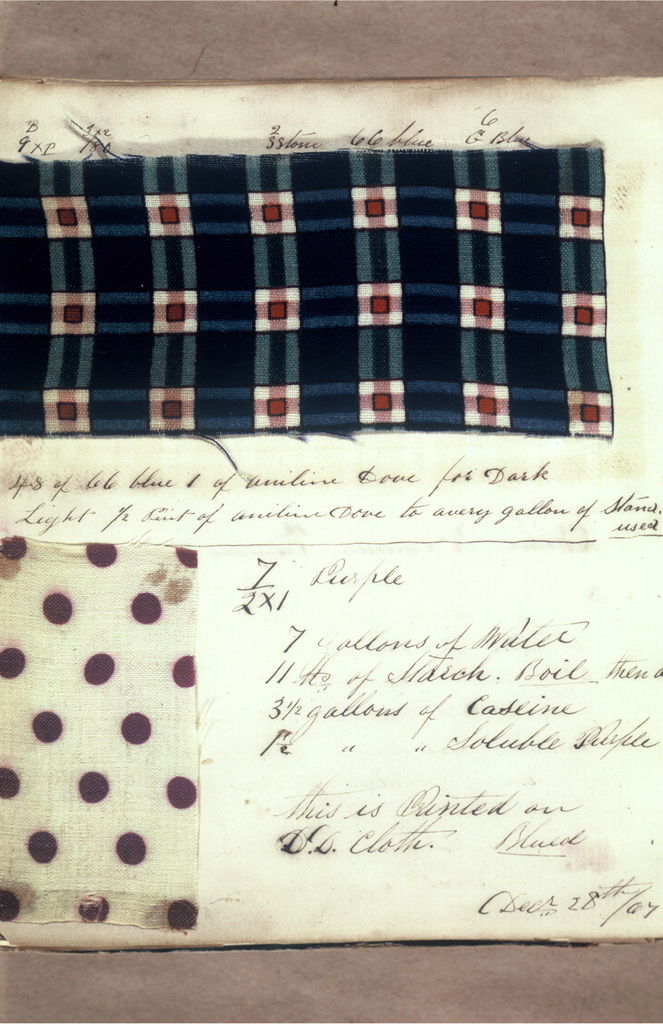 B 3x2 2 6
9 x P 1x0 3 stone 66 blue G Blue
48 of 66 blue 1 of aniline Dove for Dark
Light 1/2 Pint of aniline Dove to avery gallon of Stand.
used
7 Purple
2x1
7 gallons of Water
11 lbs of Starch. Boil then a
3 1/2 gallons of Caseine
1 1/2 " " Soluble Purple
this is Printed on
D.D. Cloth. Blued
Decr 28th/67